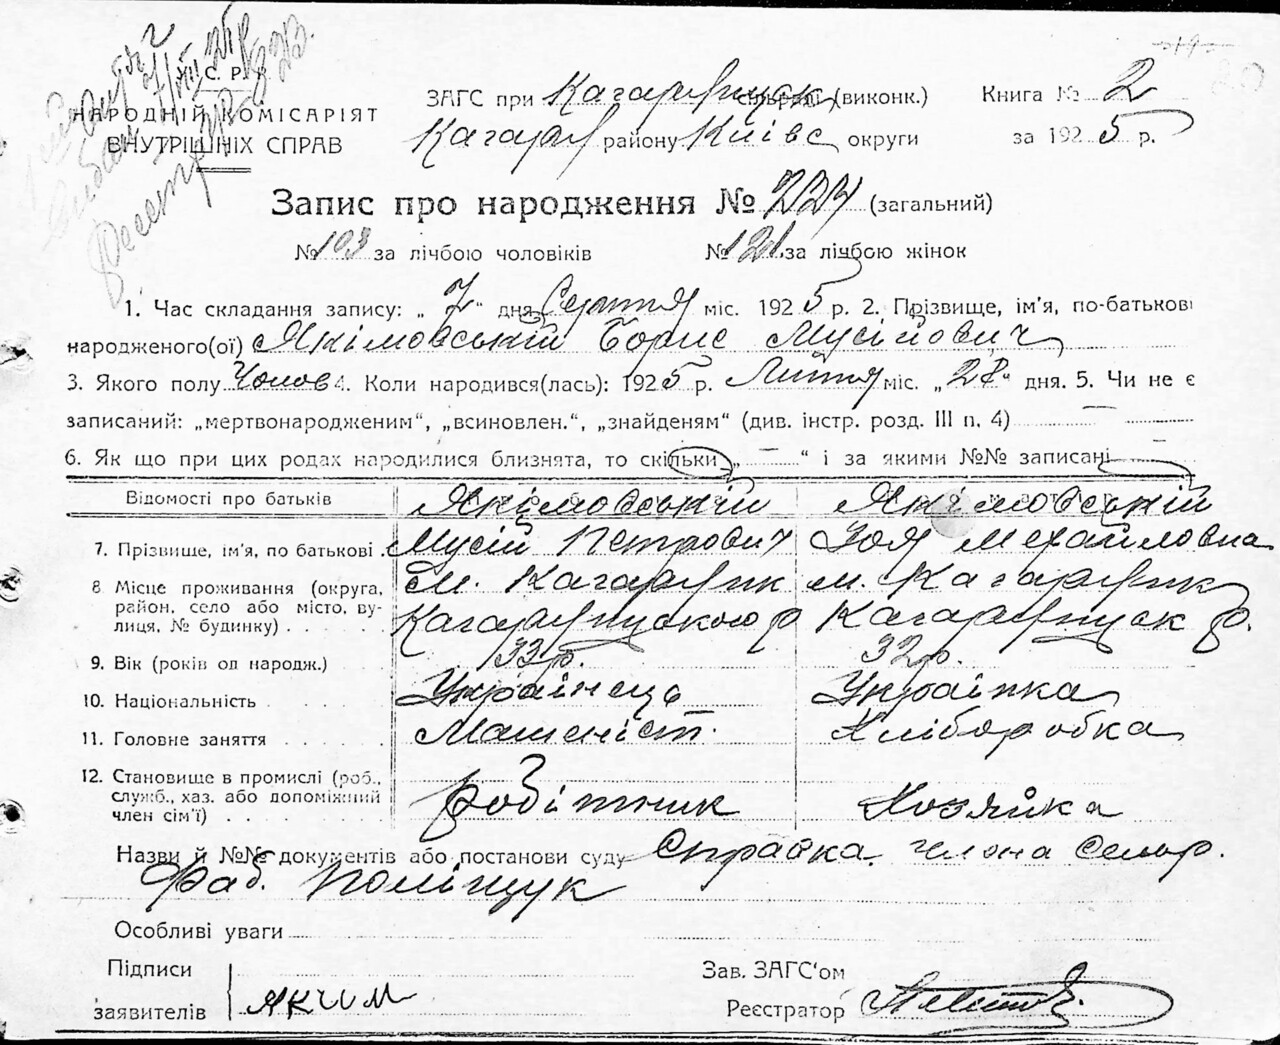 У.С.Р.Р.
НАРОДНІЙ КОМІСАРІЯТ
ВНУТРІШНІХ СПРАВ
ЗАГС при Кагарлицьк сільраді (виконк.)
Кагарл району Київс округи
Книга № 2
за 1925 р.
Запис про народження № 224 (загальний)
№ 103 за лічбою чоловіків № 121 за лічбою жінок
1. Час складання запису: „7“ дня Серпня міс. 1925 р. 2. Прізвище, ім'я, по-батькові
народженого(ої) Якімовський Борис Мусійович
3. Якого полу Чолов 4. Коли народився(лась): 1925 р. Липня міс. „28“ дня. 5. Чи не є
записаний: „мертвонародженим“, „всиновлен.“, „знайденям“ (див. інстр. розд. III п. 4)
6. Як що при цих родах народилися близнята, то скільки „—“ і за якими №№ записані
Відомості про батьків Якімовський Якімовській
7. Прізвище, ім'я, по батькові Мусій Петрович Зоя Михайловна
8 Місце проживання (округа, район, село або місто, вулиця, № будинку) м. Кагарлик м. Кагарлик
Кагарлицького р Кагарлицьк р.
9. Вік (років од народж.) 33 р. 32 р.
10. Національність Українець Українка
11. Головне заняття Машиніст. Хліборобка
12. Становище в промислі (роб., служб., хаз. або допоміжний член сім'ї) Робітник Хозяйка
Назви й №№ документів або постанови суду Справка члена Сельр.
Поліщук
Особливі уваги
Підписи
заявителів Яким
Зав. ЗАГС'ом
Реєстратор